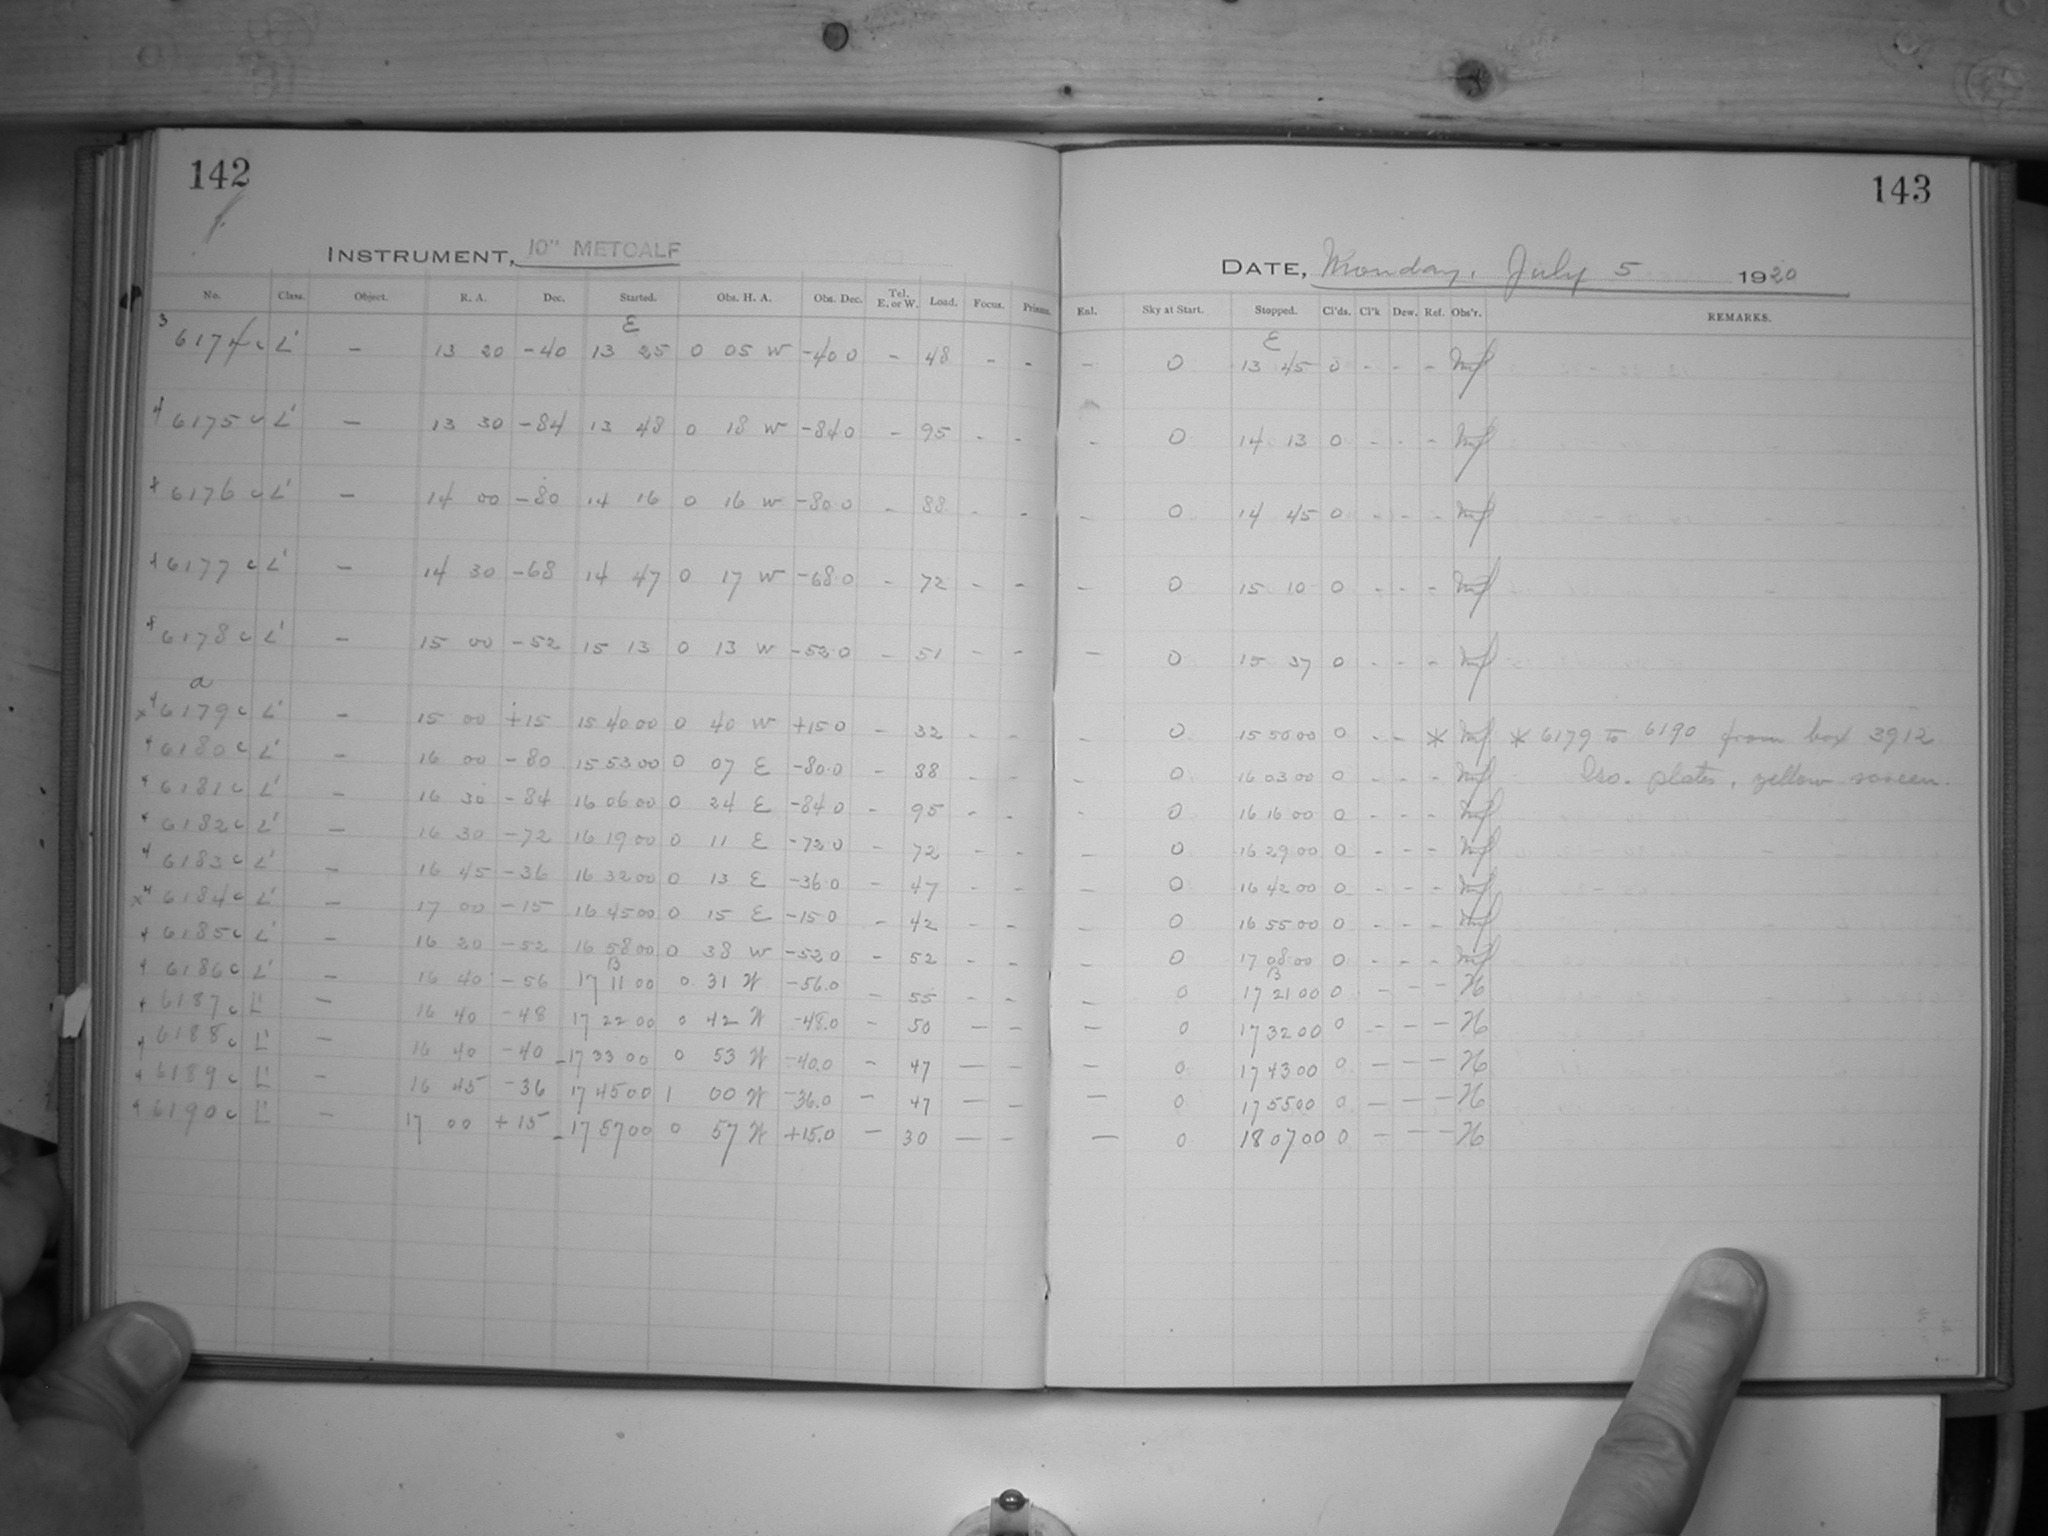 142
143
INSTRUMENT, 10" METCALF
DATE, Monday, July 5 1920
No. Class. Object. R. A. Dec. Started. Obs. H. A. Obs. Dec. Tel. E. or W. Load. Focus. Prisms. Enl. Sky at Start. Stopped. Cl'ds. Cl'k Dew. Ref. Obs'r. REMARKS.
E E
3 6174 c L' - 13 20 -40 13 25 0 05 W -40 0 - 48 - - - 0 13 45 0 - - -
4 6175 c L' - 13 30 -84 13 48 0 18 W -84 0 - 95 - - - 0 14 13 0 - - -
4 6176 c L' - 14 00 -80 14 16 0 16 W -80 0 - 88 - - - 0 14 45 0 - - -
4 6177 c L' - 14 30 -68 14 47 0 17 W -68.0 - 72 - - - 0 15 10 0 - - -
4 6178 c L' - 15 00 -52 15 13 0 13 W -52.0 - 51 - - - 0 15 37 0 - - -
a
x 4 6179 c L' - 15 00 +15 15 40 00 0 40 W +15 0 - 32 - - 0 15 50 00 0 - - * * 6179 to 6190 from box 3912
4 6180 c L' - 16 00 -80 15 53 00 0 07 E -80.0 - 88 - - - 0 16 03 00 0 - - - Iso. plates, yellow screen.
4 6181 c L' - 16 30 -84 16 06 00 0 24 E -84 0 - 95 - - - 0 16 16 00 0 - - -
4 6182 c L' - 16 30 -72 16 19 00 0 11 E -72.0 - 72 - - - 0 16 29 00 0 - - -
4 6183 c L' - 16 45 -36 16 32 00 0 13 E -36.0 - 47 - - - 0 16 42 00 0 - - -
x 4 6184 c L' - 17 00 -15 16 45 00 0 15 E -15 0 - 42 - - - 0 16 55 00 0 - - -
4 6185 c L' - 16 20 -52 16 58 00 0 38 W -52.0 - 52 - - - 0 17 08 00 0 - - -
B B
4 6186 c L' - 16 40 -56 17 11 00 0 31 W -56.0 - 55 - - - 0 17 21 00 0 - - - H
4 6187 c L' - 16 40 -48 17 22 00 0 42 W -48.0 - 50 - - - 0 17 32 00 0 - - - H
4 6188 c L' - 16 40 -40 17 33 00 0 53 W -40.0 - 47 - - - 0 17 43 00 0 - - - H
4 6189 c L' - 16 45 -36 17 45 00 1 00 W -36.0 - 47 - - - 0 17 55 00 0 - - - H
4 6190 c L' - 17 00 +15 17 57 00 0 57 W +15.0 - 30 - - - 0 18 07 00 0 - - - H